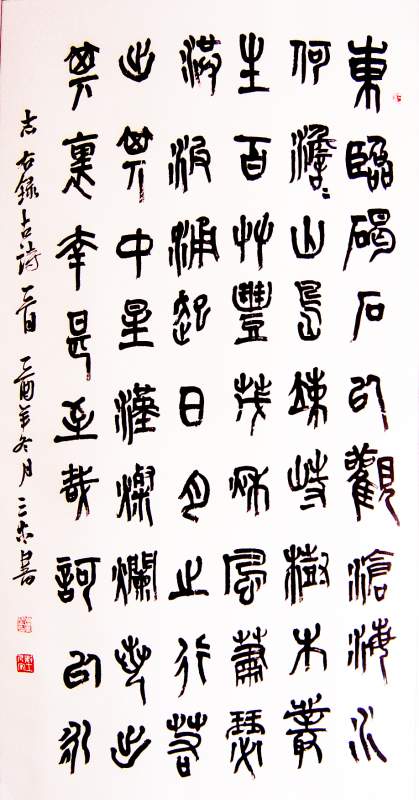 東臨碣石以觀滄海水
何澹〻山島竦峙樹木叢
生百艸豐茂秋風蕭瑟
洪波涌起日月之行若
出其中星漢燦爛若出
其裏幸甚至哉訶以永
志 右錄古詩一首 乙酉年冬月 三 書